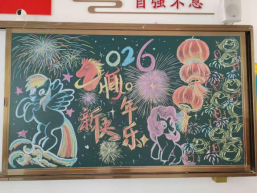 自强不息
2026
新年
快乐